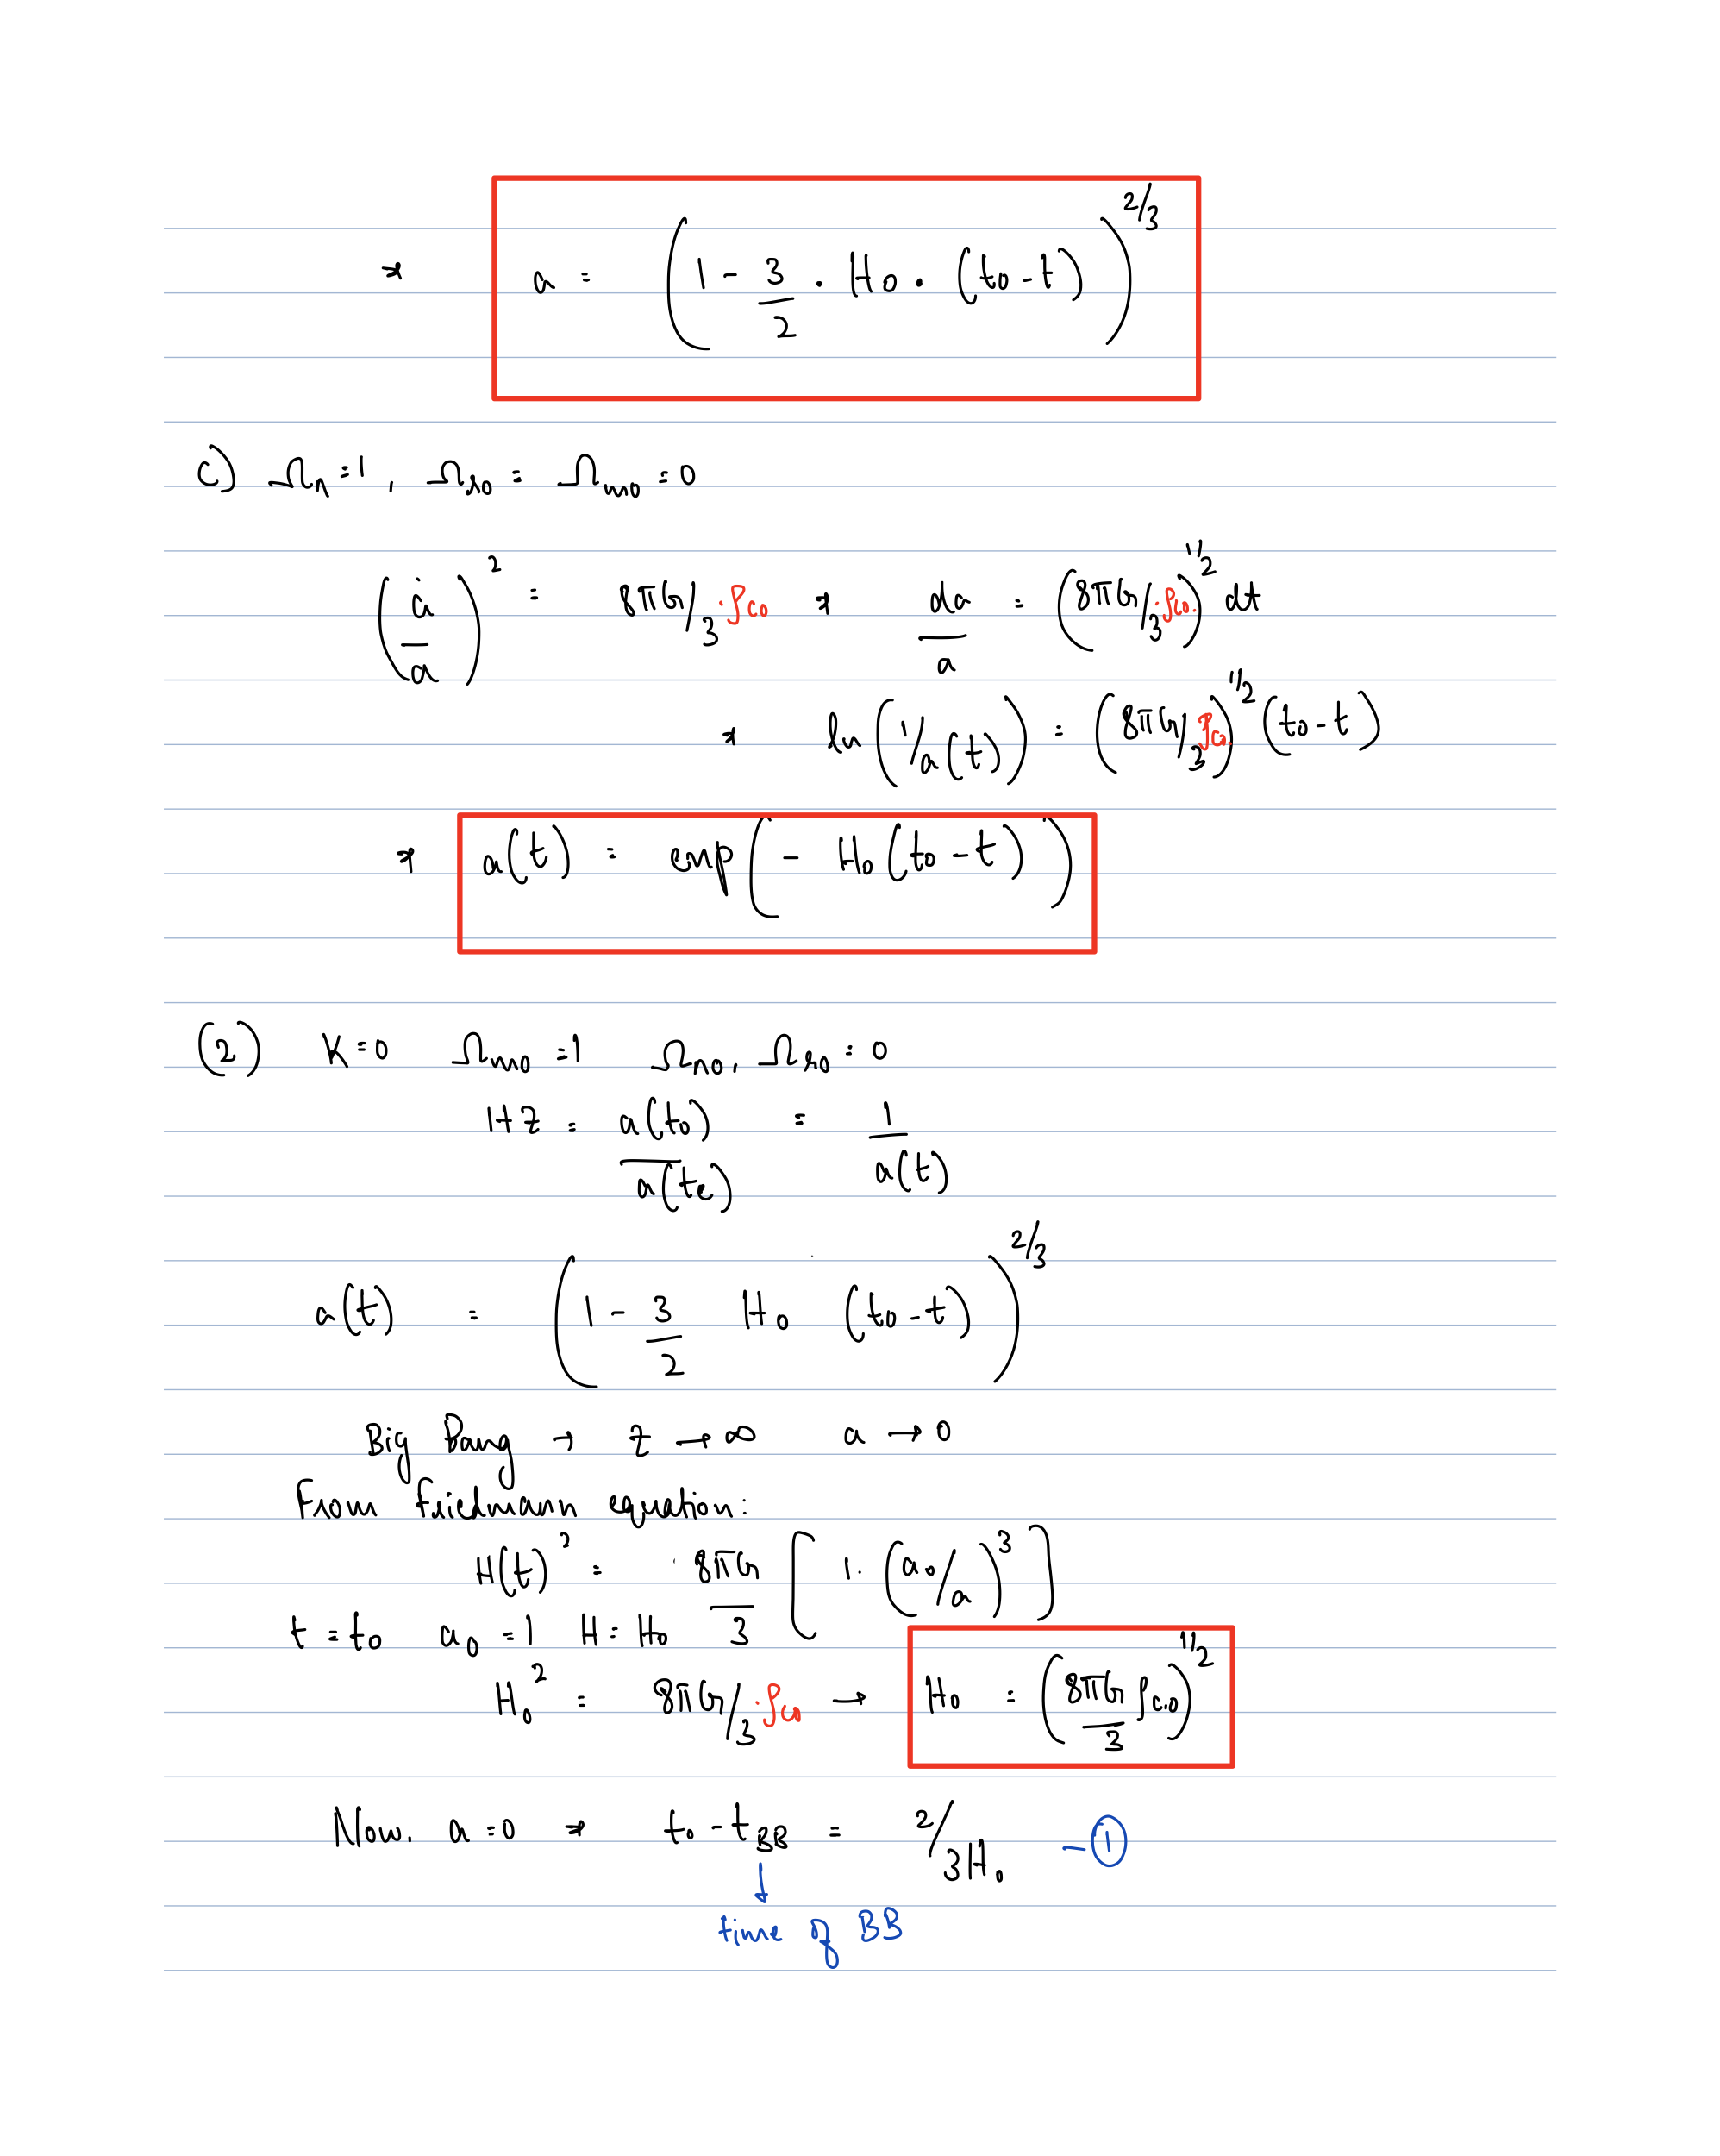 * a = (1 - 3/2 . H₀ . (t₀ - t))^2/3
c) Ω_Λ = 1 , Ω_r0 = Ω_m0 = 0
(ȧ/a)² = 8πG/3 · ρ_c0 * da/a = (8πG/3 · ρ_c0.)^1/2 dt
* ln(1/a(t)) = (8πG/3 ρ_c0.)^1/2 (t₀ - t)
* a(t) = exp(- H₀(t₀ - t))
(2) K=0 Ω_m0 = 1 Ω_Λ0, Ω_r0 = 0
1+z = a(t₀)/a(te) = 1/a(t)
a(t) = (1 - 3/2 H₀ (t₀ - t))^2/3
Big Bang → z → ∞ a → 0
From Friedmann equation:
H(t)² = 8πG/3 [1. (a₀/a)³]
t = t₀ a₀ = 1 H = H₀
H₀² = 8πG/3 · ρ_c0 → H₀ = (8πG/3 ρ_c,0)^1/2
Now. a = 0 * t₀ - t_BB = 2/3H₀ - ①
↓
time of BB